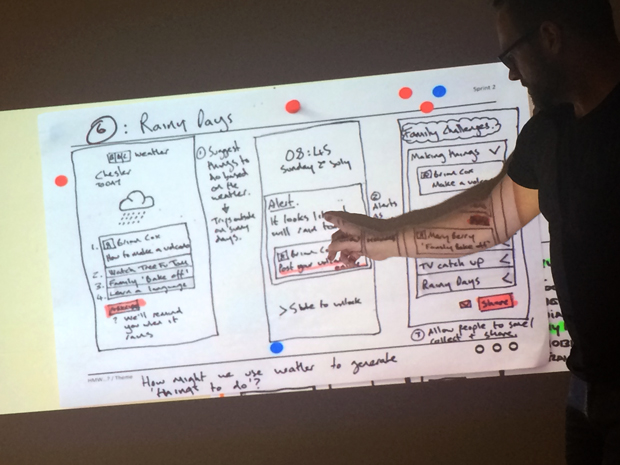 Sprint 2
6 : Rainy Days
BBC Weather
Chester
TODAY
1. Brian Cox
How to make a volcano
2. Watch Dee Fu Tom
3. Family 'Bake off'
4. Learn a language
? We'll remind
you when it
rains
1 Suggest
things to
do based
on the
weather.
Try outside
on sunny
days.
08:45
Sunday 2 July
Alert.
It looks like
will rain to
Brian Co
Post your
> Slide to unlock
2
Alerts
as
Family Challenges.
Making things
Brian Cox
Make a volc
Mary Berry
'Family Bake off'
TV catch up
Rainy Days
Share
3 Allow people to save/
collect & share.
How might we use weather to generate
'things to do'?